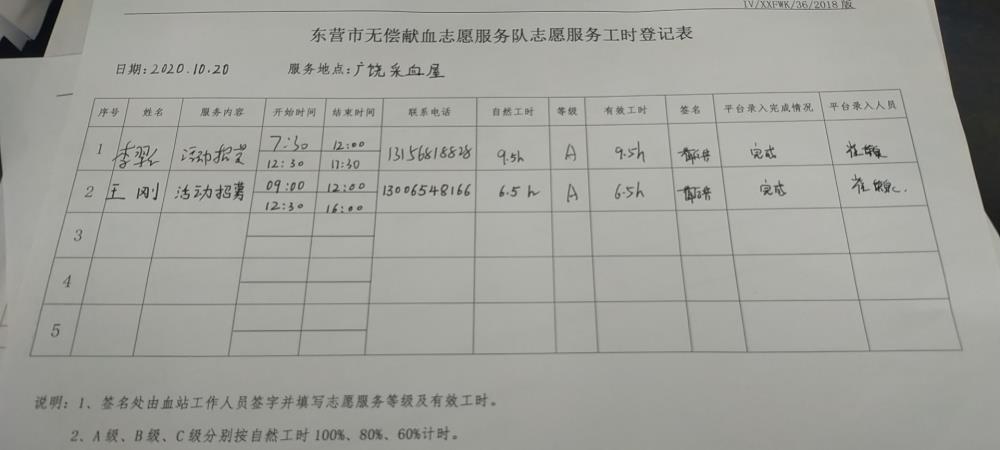 IV/XXFWK/36/2018版
东营市无偿献血志愿服务队志愿服务工时登记表
日期:2020.10.20 服务地点:广饶采血屋
序号 姓名 服务内容 开始时间 结束时间 联系电话 自然工时 等级 有效工时 签名 平台录入完成情况 平台录入人员
1 李翠 活动招募 7:30 12:00 13156818828 9.5h A 9.5h 完成 崔
12:30 17:30
2 王刚 活动招募 09:00 12:00 13006548166 6.5h A 6.5h 完成 崔
12:30 16:00
3
4
5
说明:1、签名处由血站工作人员签字并填写志愿服务等级及有效工时。
2、A级、B级、C级分别按自然工时100%、80%、60%计时。